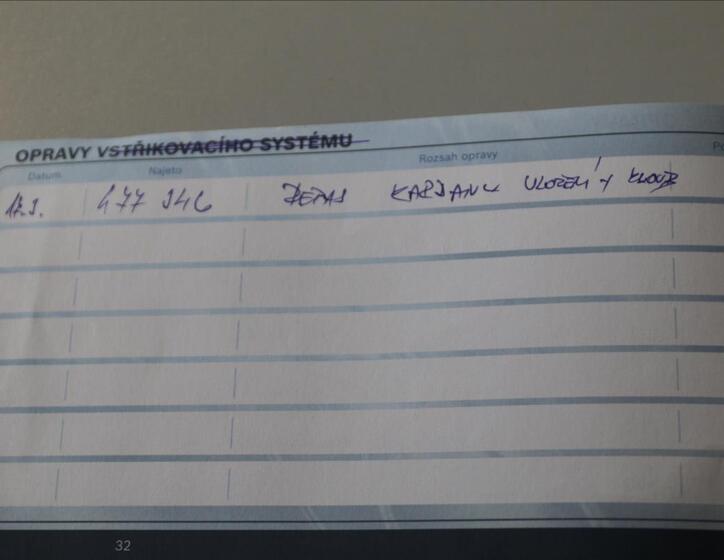 OPRAVY VSTŘIKOVACÍHO SYSTÉMU
Datum Najeto Rozsah opravy
477 KARDANU ULOŽENÍ + KLOUB
32